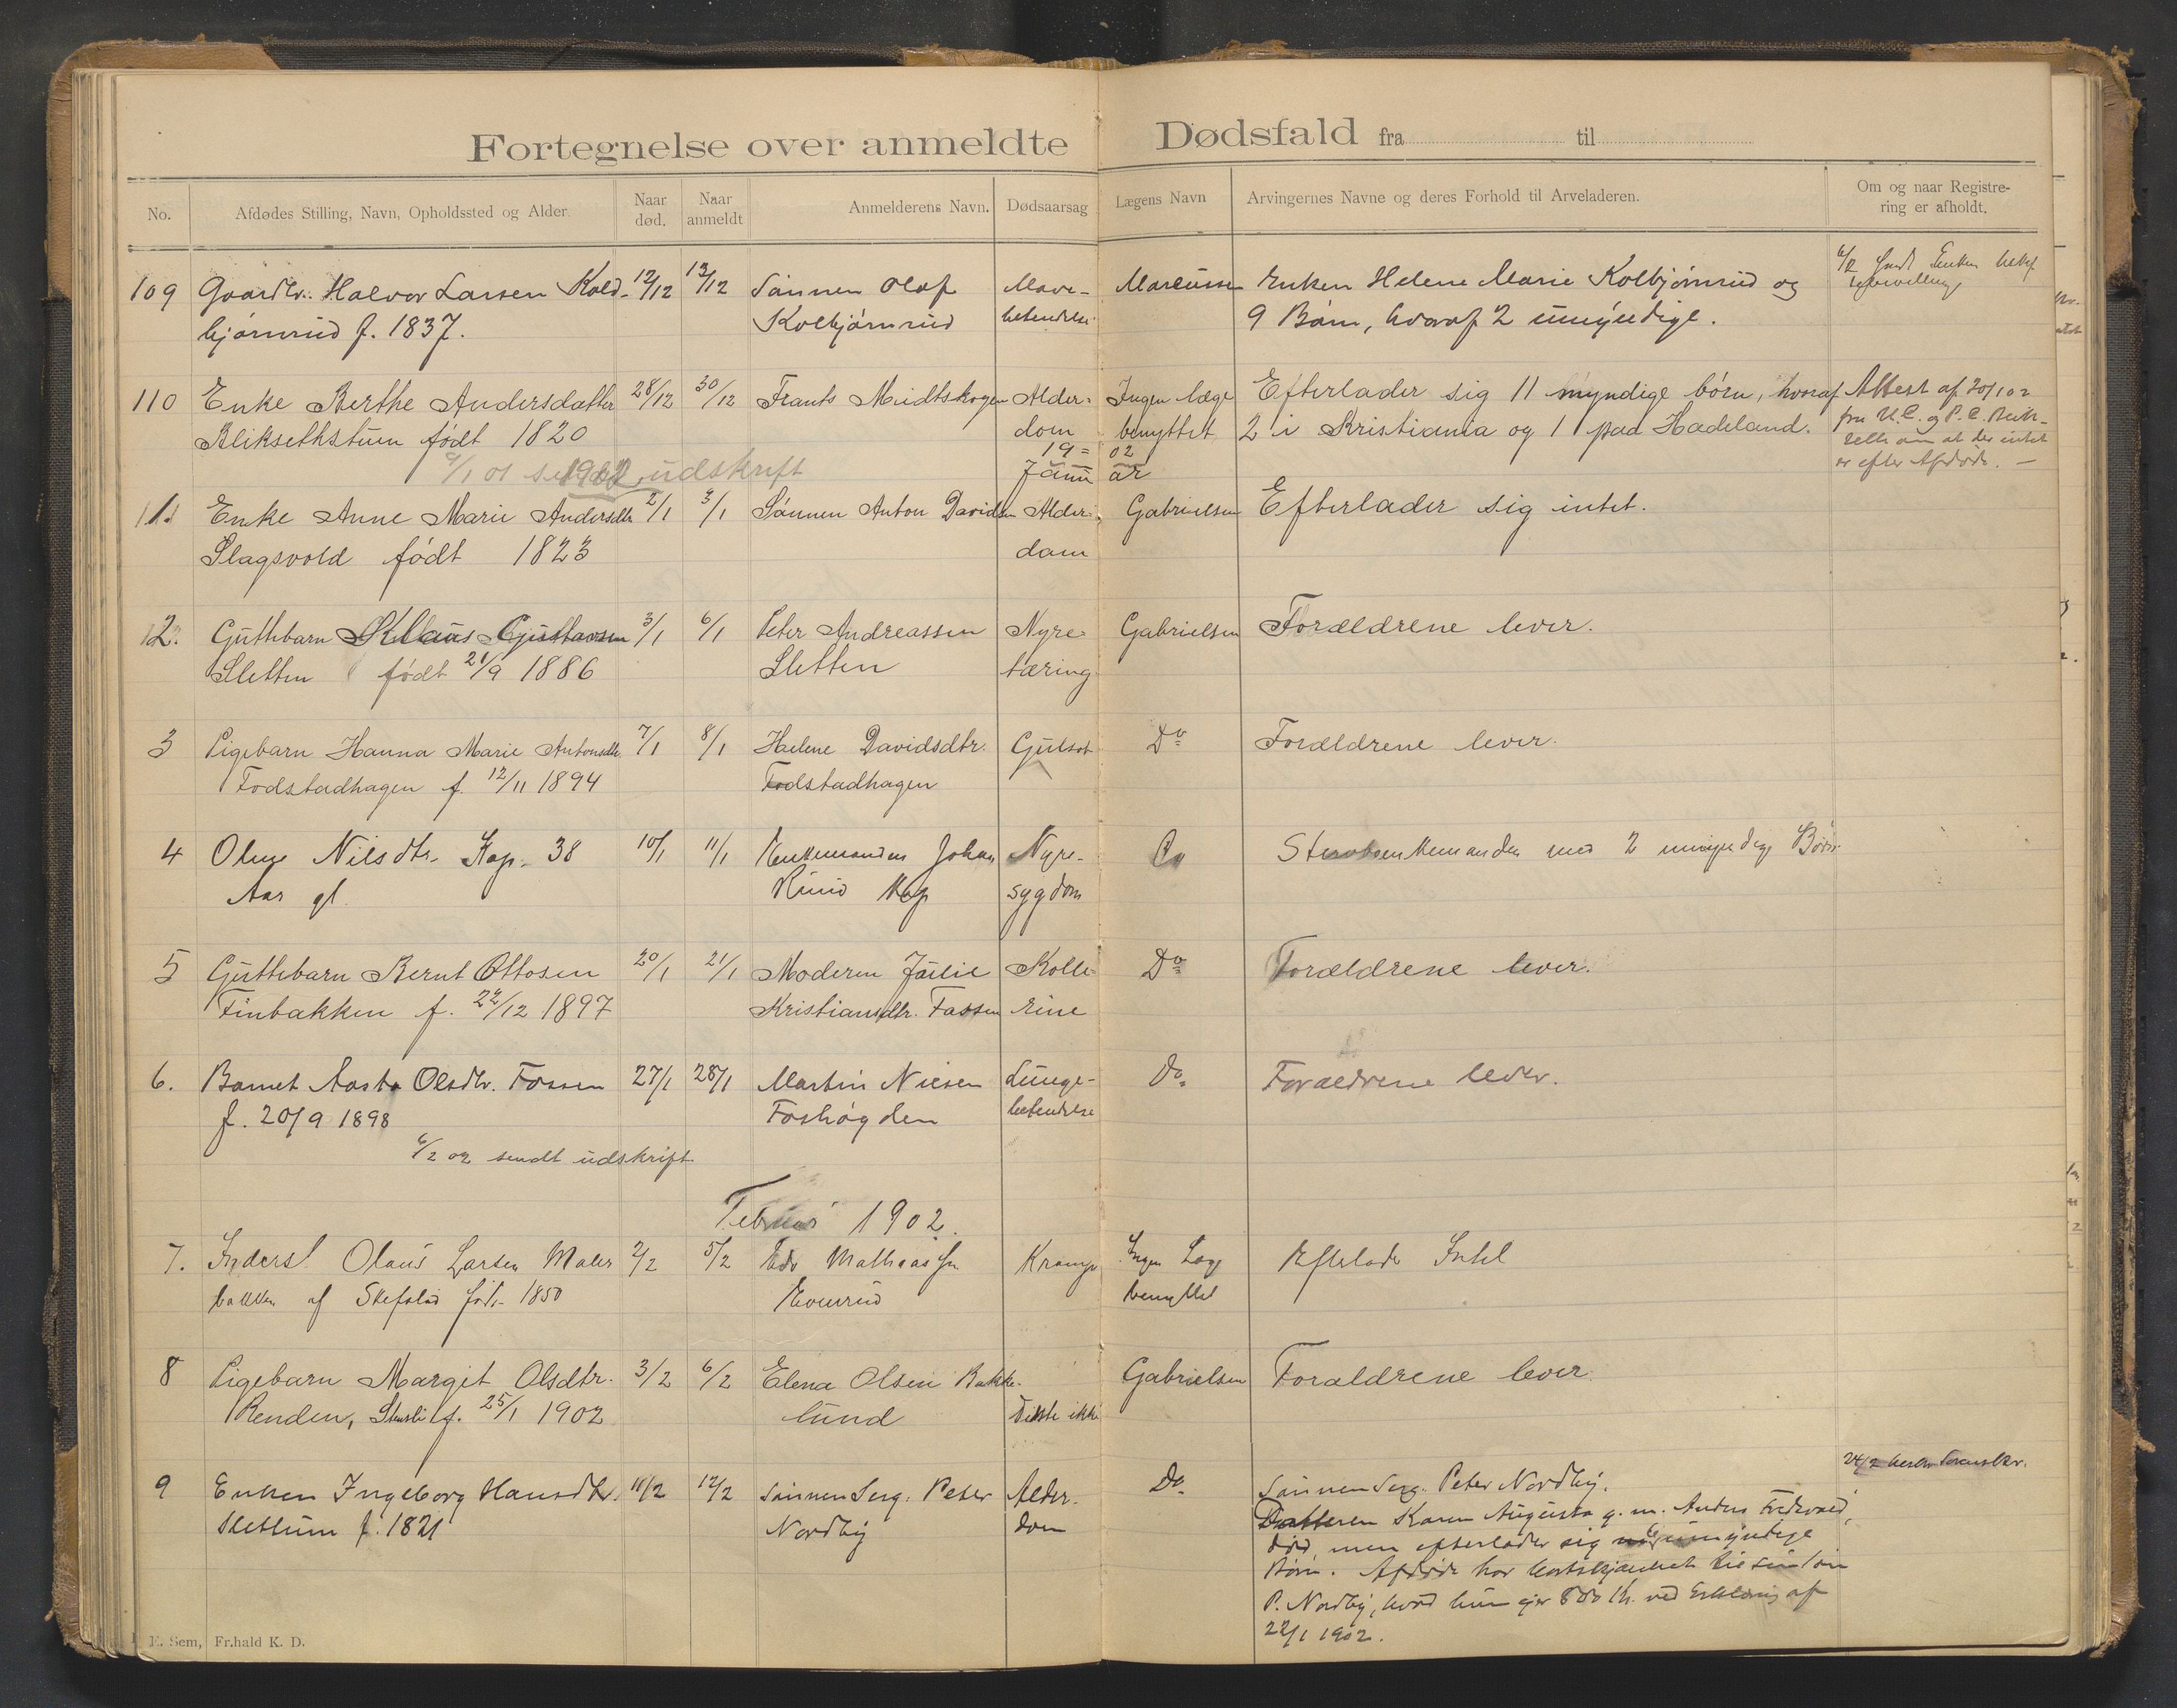 Fortegnelse over anmeldte Dødsfald fra til
No. Afdødes Stilling, Navn, Opholdssted og Alder. Naar død. Naar anmeldt Anmelderens Navn. Dødsaarsag Lægens Navn Arvingernes Navne og deres Forhold til Arveladeren. Om og naar Registrering er afholdt.
109 Gaardbr. Halvor Larsen Kold- 12/12 13/12 Sønnen Olaf Mave- Marcussen Enken Helene Marie Kolbjørnsrud og
bjørnsrud f. 1837. Kolbjørnsrud betendelse 9 Børn, hvoraf 2 umyndige.
110 Enke Berthe Andersdatter 28/12 30/12 Frants Meidtskogen Alder- Ingen læge Efterlader sig 11 myndige børn, hvoraf Attest af 20/1 02
Bliksethstuen født 1820 dom benyttet 2 i Kristiania og 1 paa Hadeland.
9/1 01 udskrift 19=02
Januar
11. Enke Anne Marie Andersdtr 2/1 3/1 Sønnen Anton Davidsen Alder- Gabrielsen Efterlader sig intet.
Slagsvold født 1823 dom
2. Guttebarn Klaus Gustavsen 3/1 6/1 Peter Andreassen Nyre- Gabrielsen Forældrene lever.
Sletten født 21/9 1886 Sletten tæring
3 Pigebarn Hanna Marie Antonsdtr. 7/1 8/1 Helene Davidsdtr. Gulsot Do Forældrene lever.
Fodstadhagen f. 12/11 1894 Fodstadhagen
4 Oline Nilsdtr. Kap. 38 10/1 11/1 Enkemanden Johan Nyre- Do Enkemanden med 2 umyndige Børn
Aar gl. Kap sygdom
5 Guttebarn Bernt Ottosen 20/1 21/1 Moderen Julie Kolle- Do Forældrene lever.
Finbakken f. 22/12 1897 Kristiansdtr. Fossen rine
6. Barnet Aasta Olsdtr. Fossen 27/1 28/1 Martin Nilsen Lunge- Do Forældrene lever.
f. 20/9 1898 Foshøgden betendelse
6/2 02 sendt udskrift
Februar 1902.
7. Inders. Olaus Larsen Maler 2/2 5/2 Edv Mathiassen Krampe Ingen Læge Efterlader Intet
bakken af født 1850 Evenrud benyttet
8 Pigebarn Margit Olsdtr. 3/2 6/2 Elena Olsen Bakke- Gabrielsen Forældrene lever.
Renden, f. 25/1 1902 lund Vidste ikke
9 Enken Ingeborg Hansdtr. 11/2 12/2 Sønnen Serg. Peter Alder- Do Sønnen Serg. Peter Nordby.
Slettum f. 1821 Nordby dom Datteren Karen Augusta g. m. Anders
død, men efterlader sig umyndige
Børn. Afdøde har bortskjænket til sin søn
P. Nordby, hvad hun ejer ved Erklæring af
22/1 1902.
E. Sem, Fr.hald K. D.